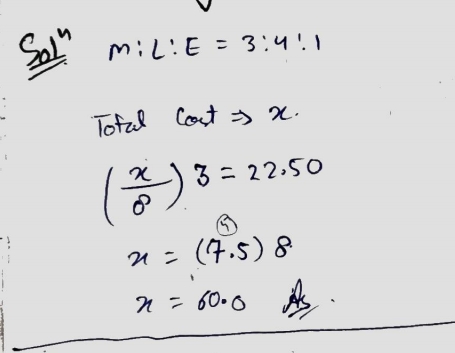 Solⁿ M:L:E = 3:4:1
Total Cost ⇒ x.
(x/8) 3 = 22.50
x = (7.5) 8
x = 60.0 As.